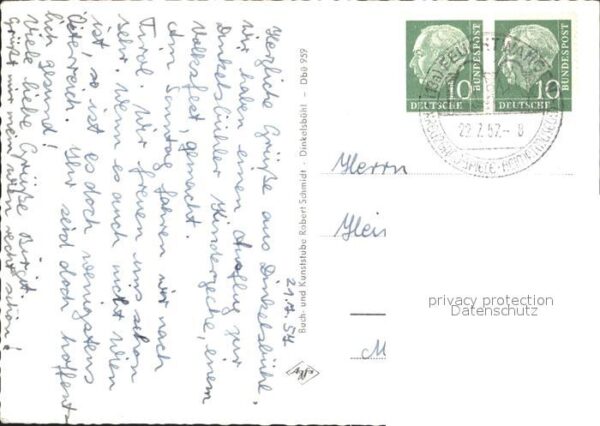 21.7.54
Herzliche Grüße aus Dinkelsbühl.
Wir haben einen Ausflug zur
Dinkelsbühler Kinderzeche, einem
Volksfest, gemacht.
Am Sonntag fahren wir nach
Tirol. Wir freuen uns schon
sehr. Wenn es auch nicht Wien
ist, so ist es doch wenigstens
Österreich. Ihr seid doch hoffent-
lich gesund!
Viele liebe Grüße Birgit.
Grüße mir recht schön!
Buch- und Kunststube Robert Schmidt - Dinkelsbühl - Dbü 959
Herrn
Heis
M
10 DEUTSCHE BUNDESPOST
10 DEUTSCHE BUNDESPOST
FEUCHTWANGEN
privacy protection
Datenschutz